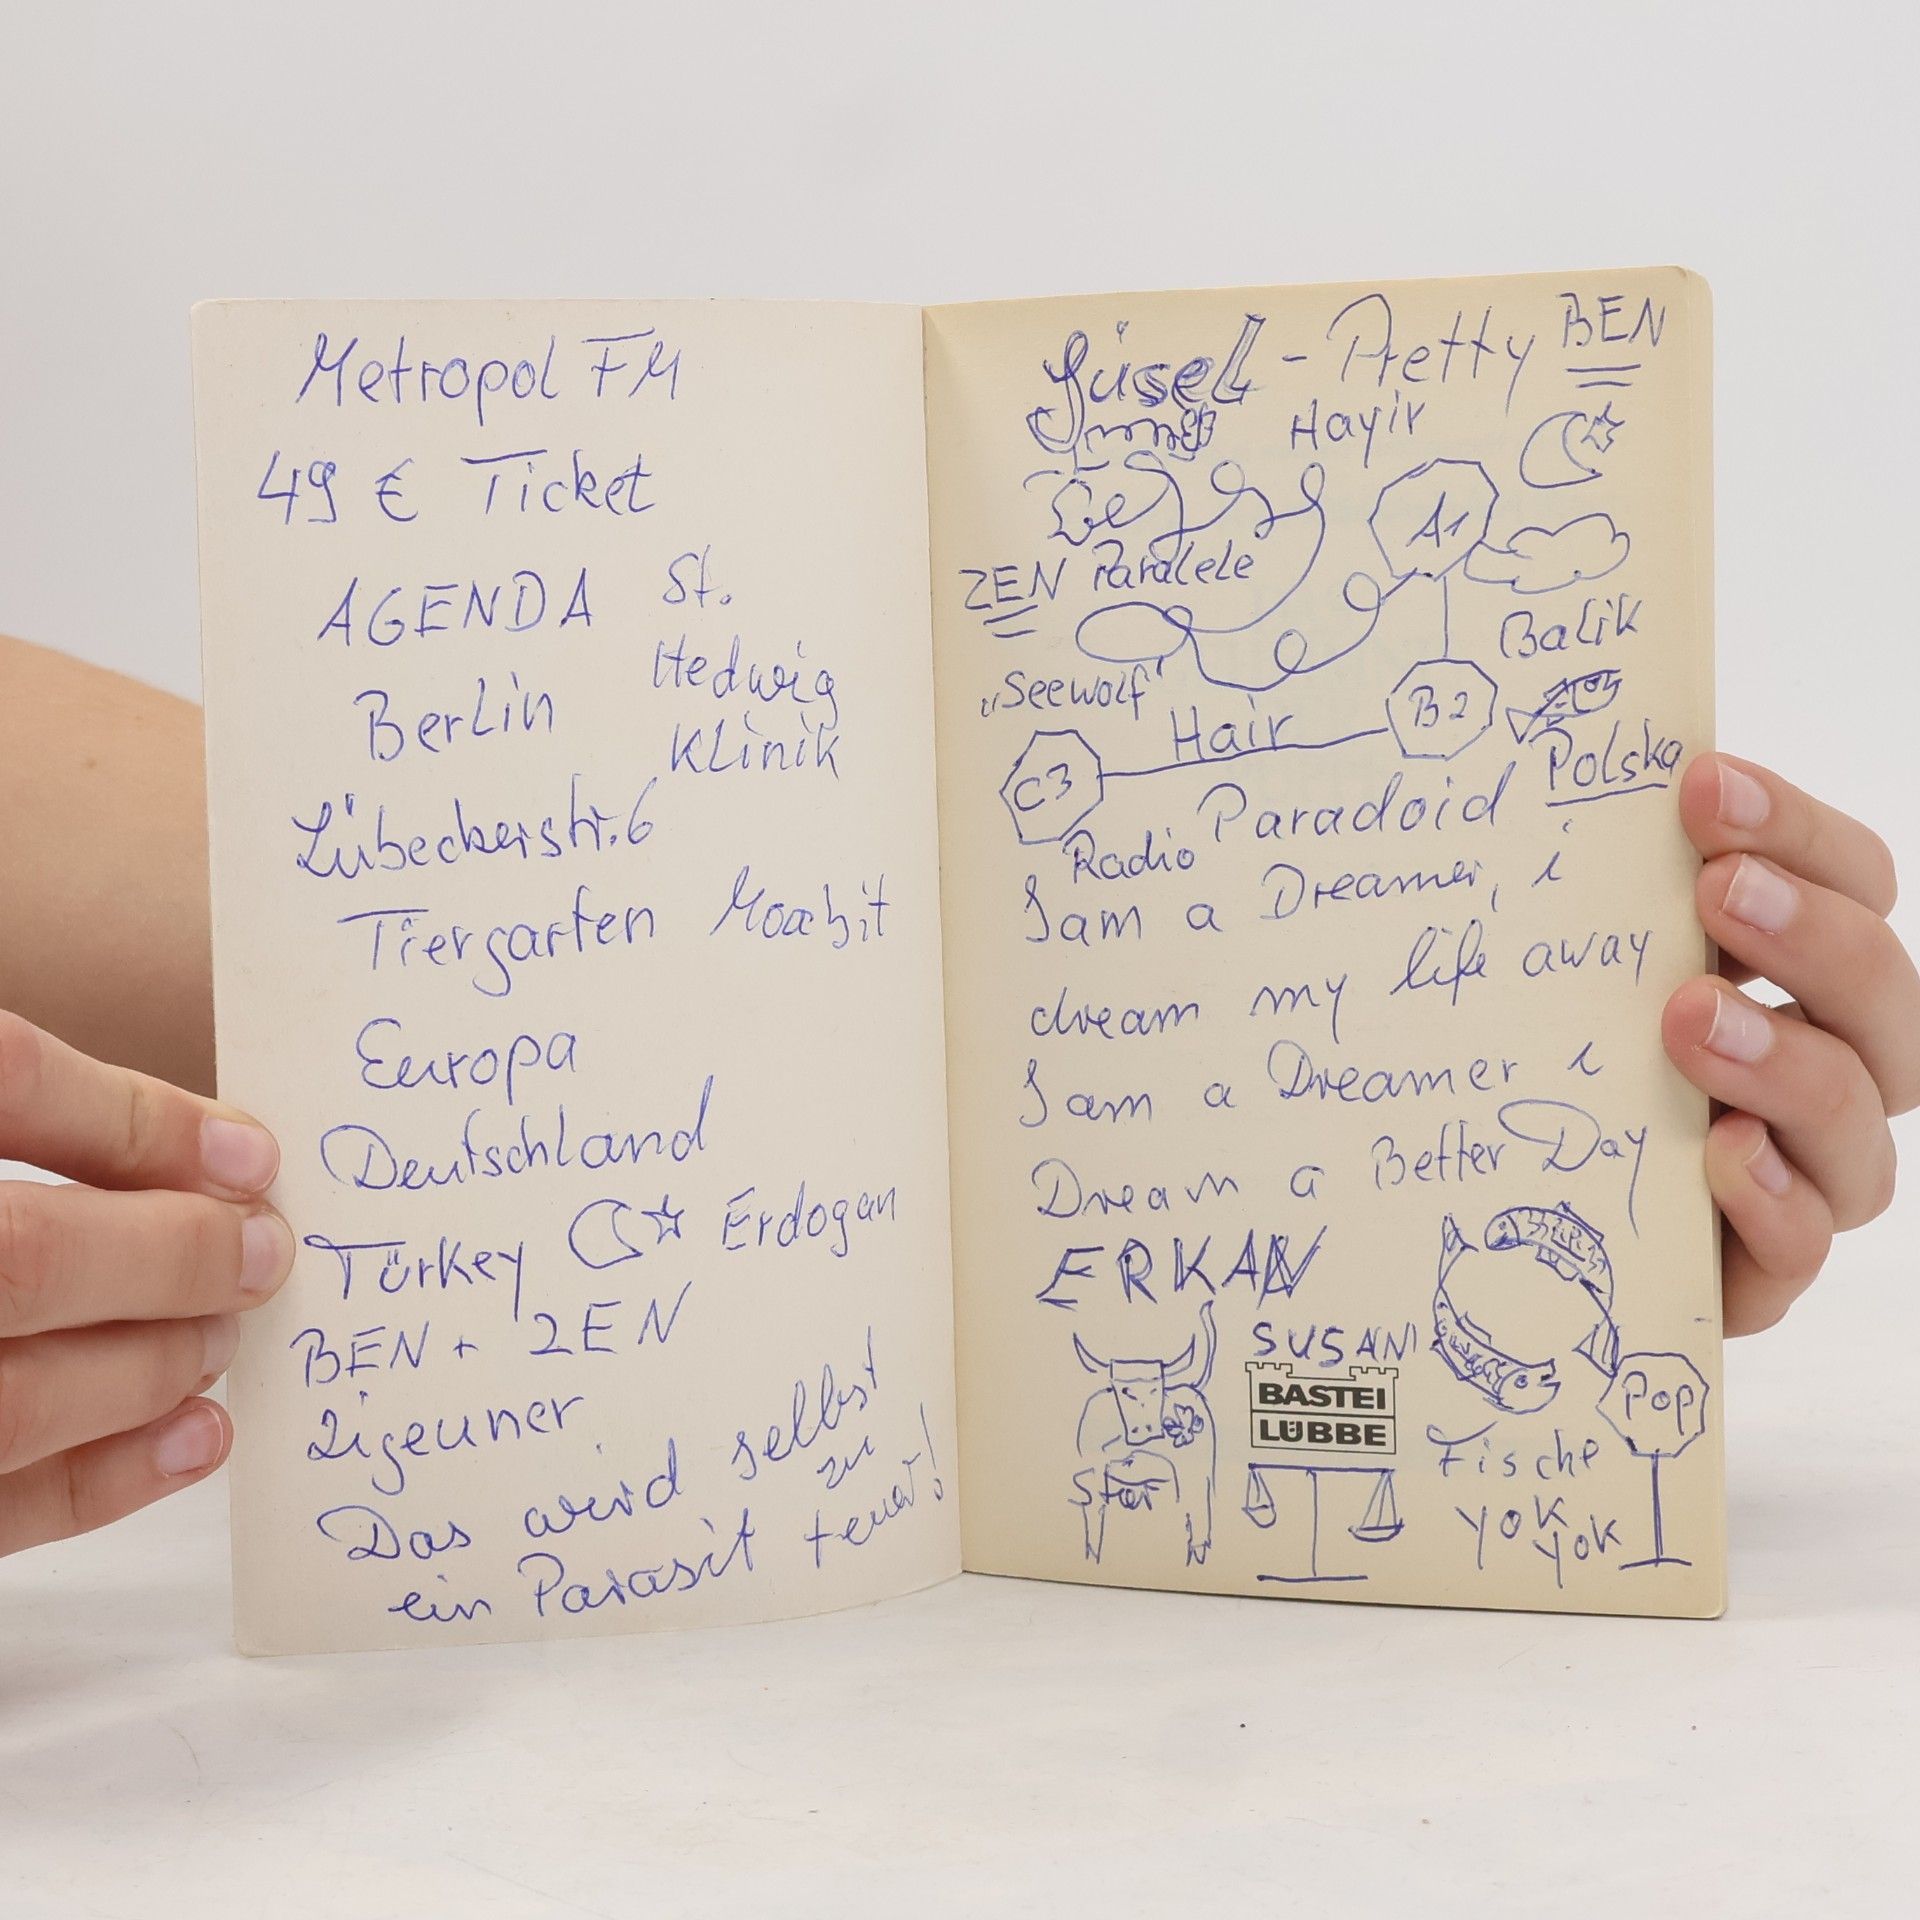 Metropol FM
49 € Ticket
AGENDA St.
Berlin Hedwig
Klinik
Lübeckerstr. 6
Tiergarten Moabit
Europa
Deutschland
Türkey Erdogan
BEN + ZEN
Zigeuner
Das wird selbst
ein Parasit zu teuer!
Güsel - Pretty BEN
Hayir
A1
ZEN Paralele
Balik
"Seewolf"
Hair B2
C3 Polska
Radio Paradoid
I am a Dreamer, i
dream my life away
I am a Dreamer i
Dream a Better Day
ERKAN
SUSAN
BASTEI
LÜBBE
Pop
Stier
Fische
YOK
YOK